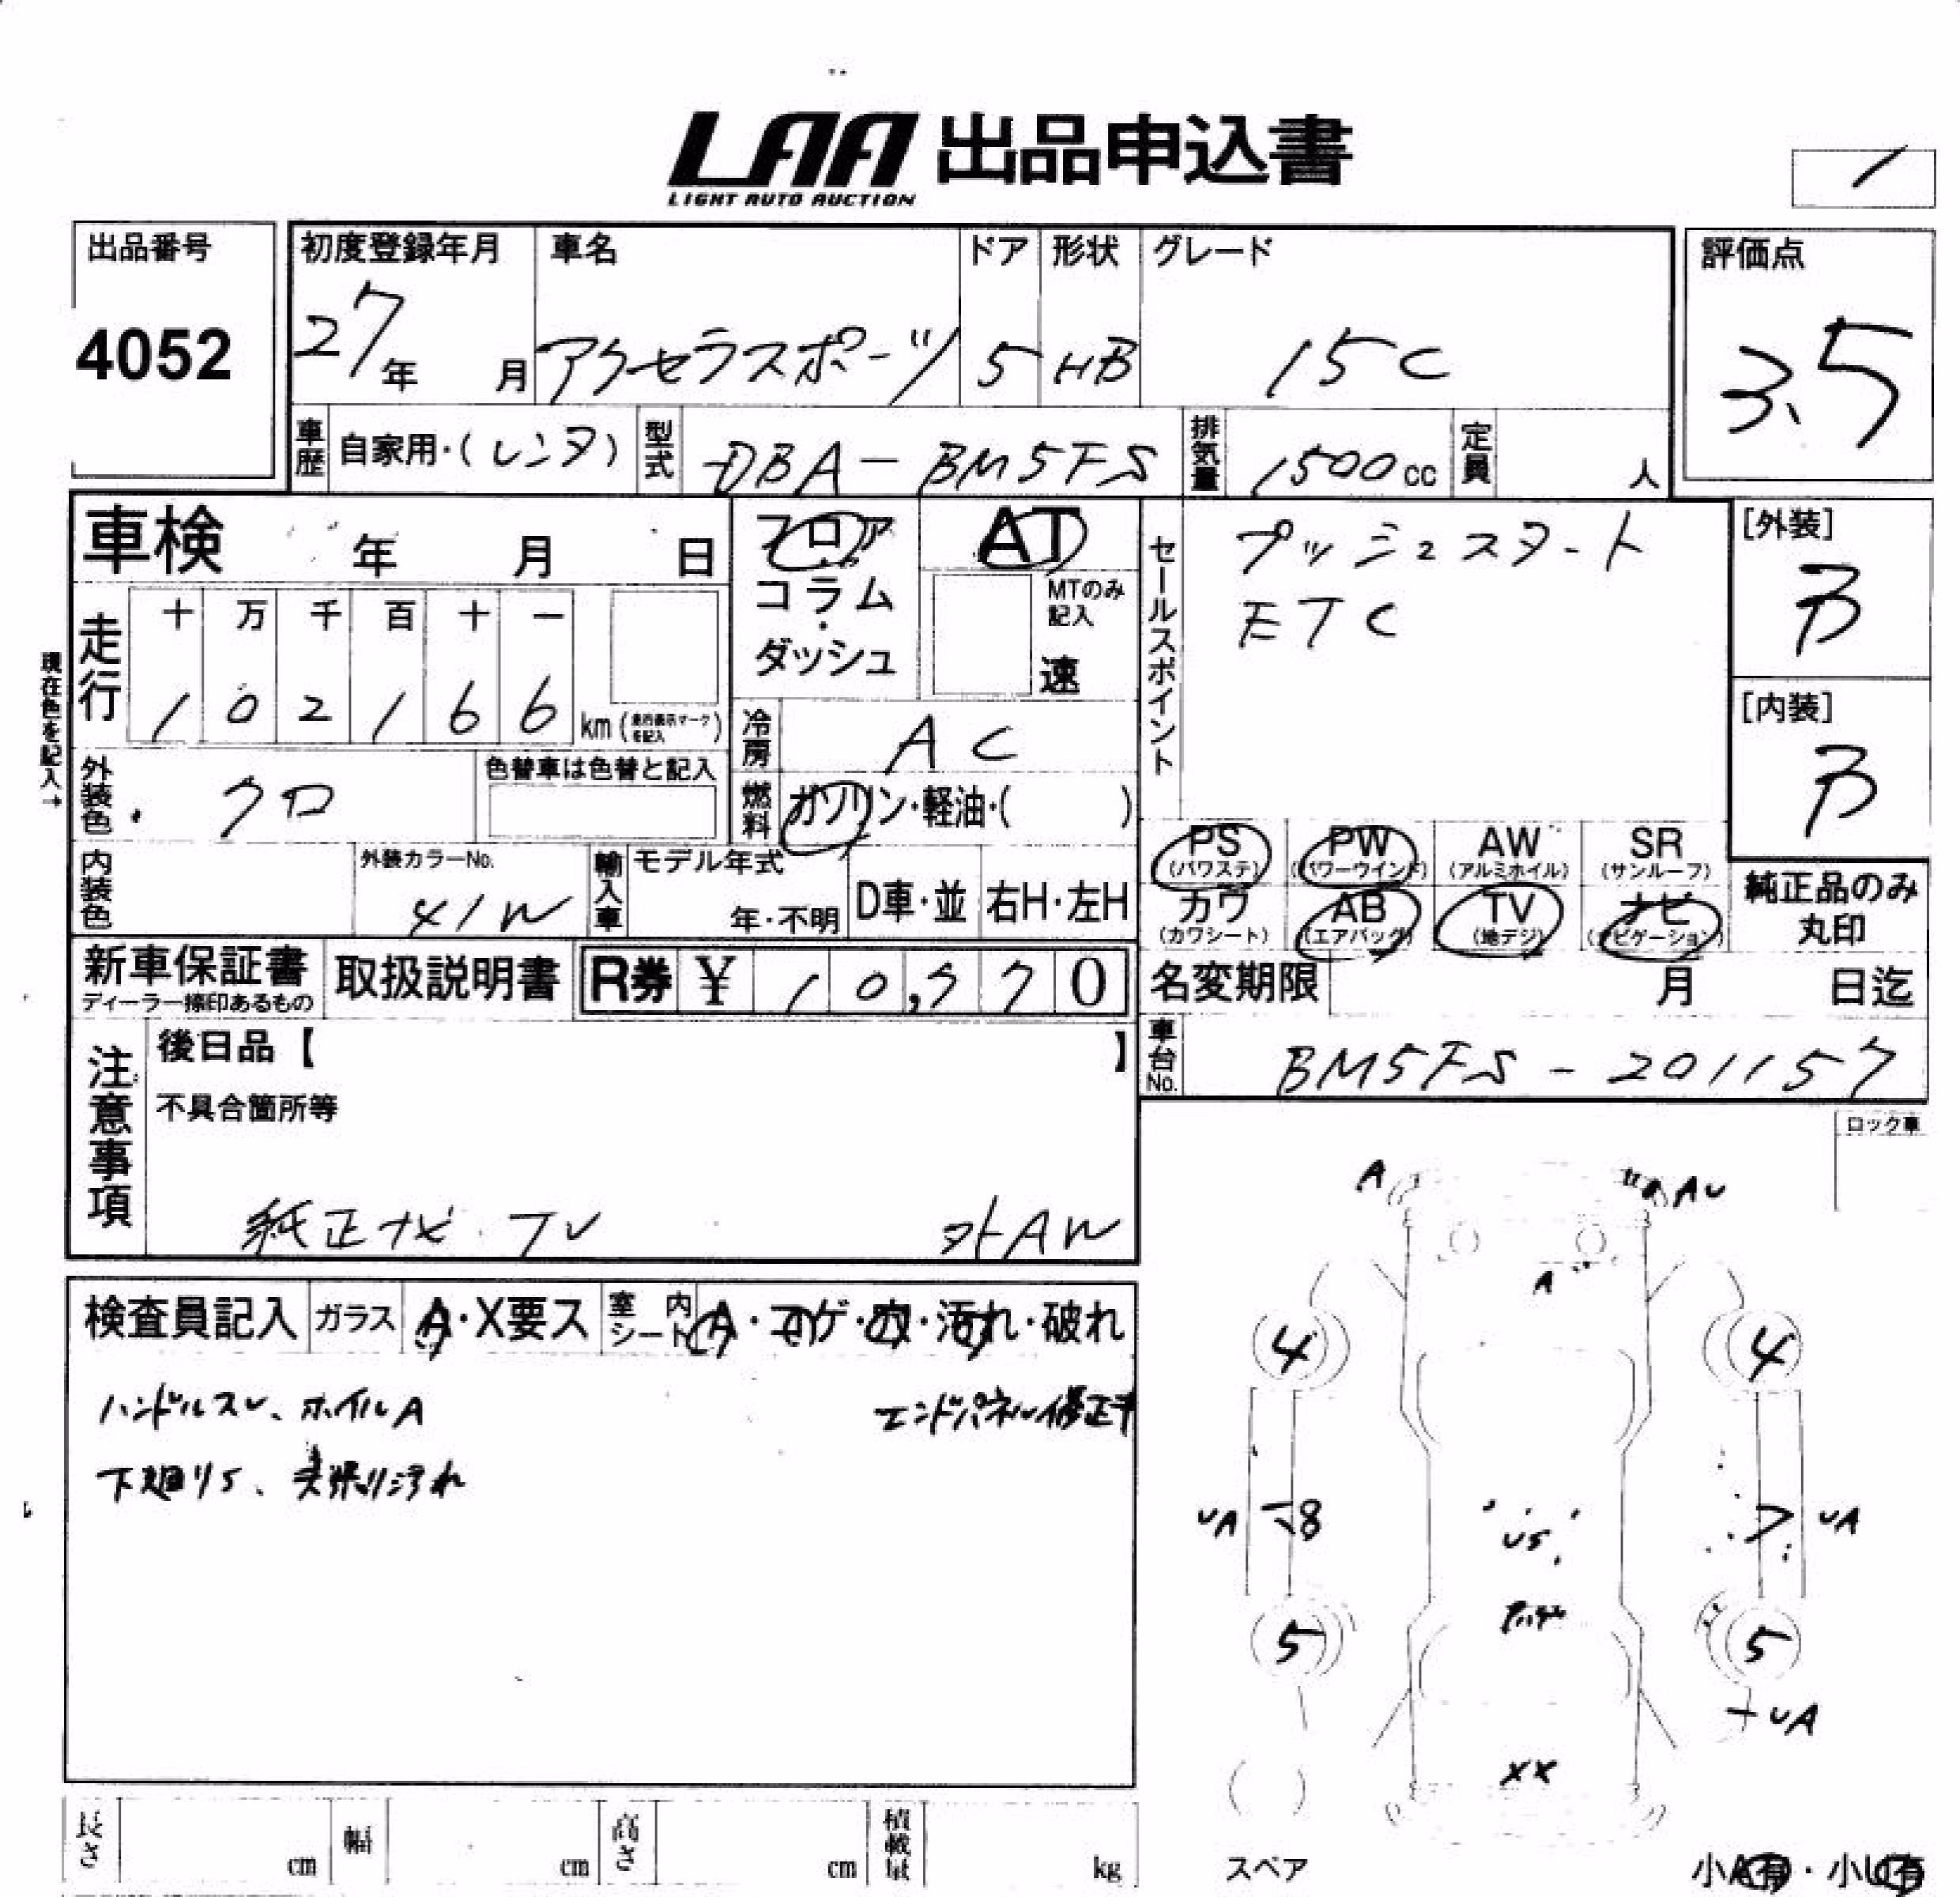 LAA 出品申込書
LIGHT AUTO AUCTION
出品番号
4052
初度登録年月
27年 月
車名
アクセラスポーツ
ドア
5
形状
HB
グレード
15C
評価点
3.5
車歴 自家用・(レンタ)
型式 DBA-BM5FS
排気量 1500cc
定員 人
車検 年 月 日
フロア
コラム
・
ダッシュ
AT
MTのみ
記入
速
セールスポイント
プッシュスタート
ETC
[外装]
B
[内装]
B
現在色を記入→
走行
十 万 千 百 十 一
1 0 2 1 6 6 km
冷房 AC
外装色 クロ
色替車は色替と記入
燃料 ガソリン・軽油・( )
内装色
外装カラーNo.
41W
輸入車
モデル年式
年・不明
D車・並
右H・左H
PS
(パワステ)
PW
(パワーウインド)
AW
(アルミホイル)
SR
(サンルーフ)
カワ
(カワシート)
AB
(エアバッグ)
TV
(地デジ)
ナビ
(ナビゲーション)
純正品のみ
丸印
新車保証書
ディーラー捺印あるもの
取扱説明書
R券 ¥ 10,770
名変期限 月 日迄
車台No. BM5FS-201157
注意事項
後日品【 】
不具合箇所等
純正ナビ・TV 外AW
ロック車
検査員記入
ガラス A・X要ス
室内シート A・コゲ・穴・汚れ・破れ
ハンドルスレ、ホイルA
エンドパネル修正
下廻りS、天張リ汚れ
A
AU
A
4
4
UA
8
US
7
UA
5
5
UA
XX
長さ cm
幅 cm
高さ cm
積載量 kg
スペア
小A有・小U有